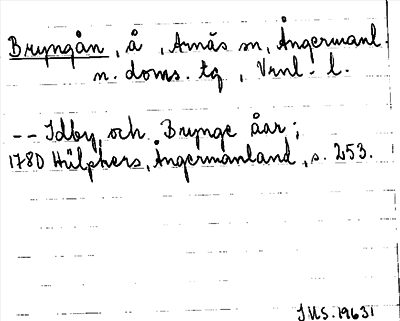 Bryngån, å, Arnäs sn, Ångermanl.
n. doms. tg, Vrnl. l.
-- Idby och Brynge åar;
1780 Hülphers, Ångermanland, s. 253.